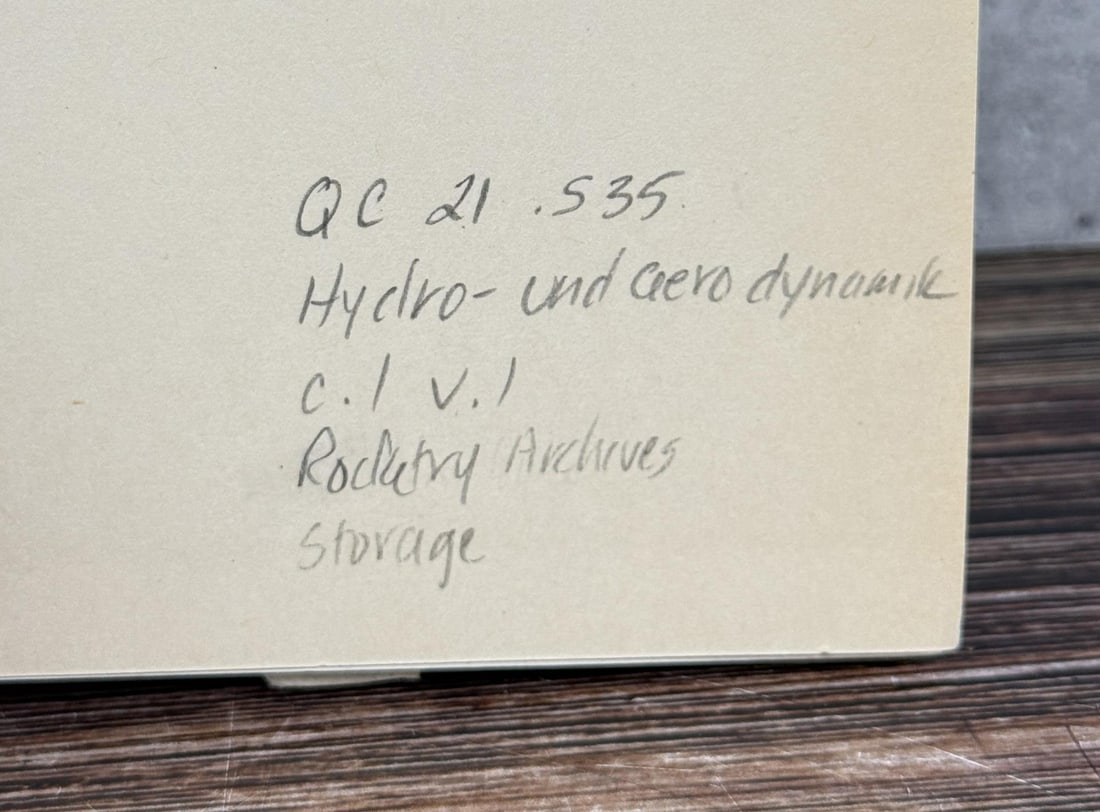 QC 21 .S35
Hydro- und aerodynamik
c.1 v.1
Rocketry Archives
Storage